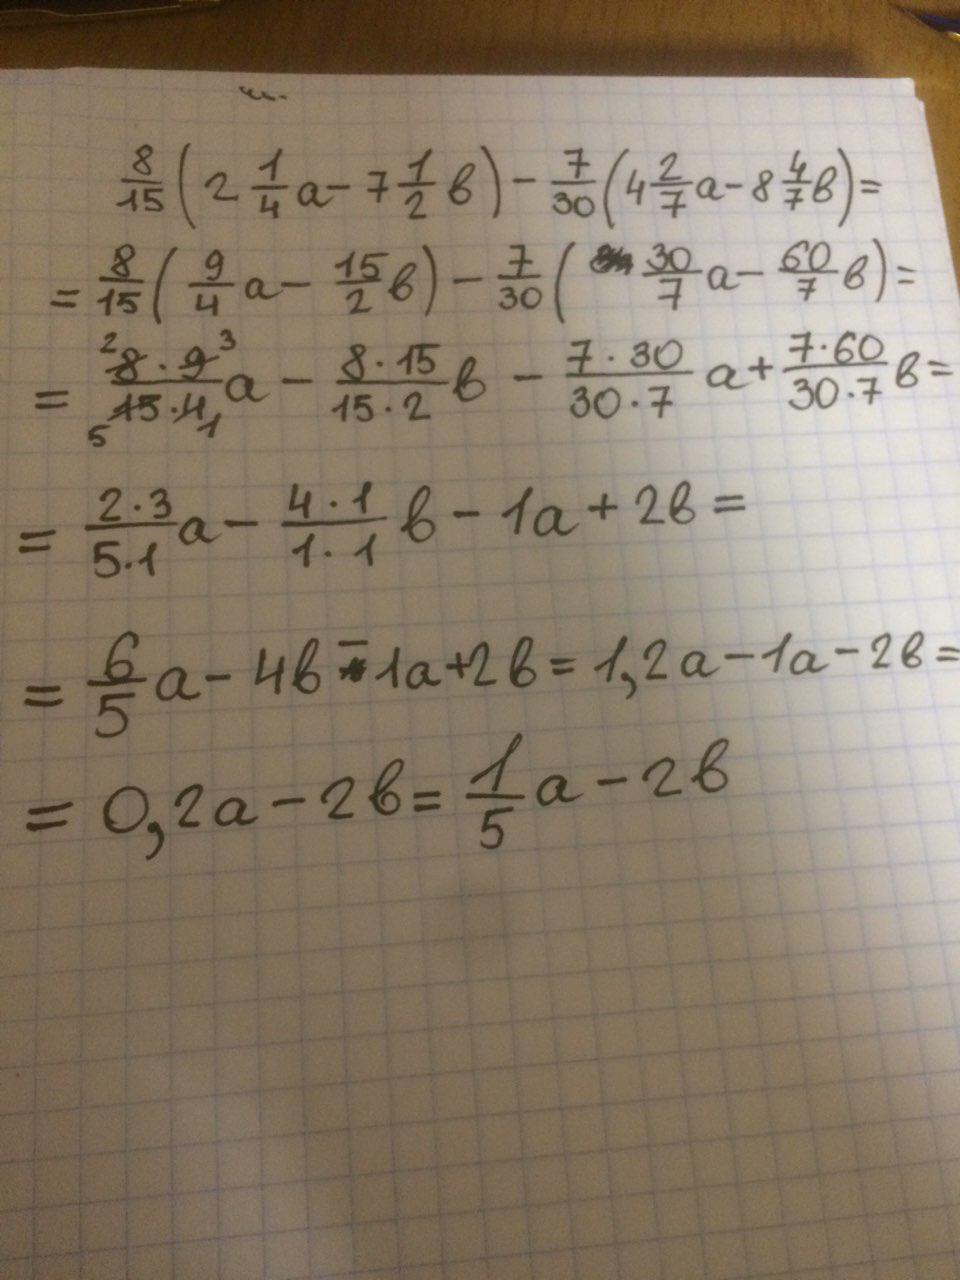 8/15 (2 1/4 а - 7 1/2 в) - 7/30 (4 2/7 а - 8 4/7 в) =
= 8/15 (9/4 а - 15/2 в) - 7/30 (30/7 а - 60/7 в) =
= 8·9/15·4 а - 8·15/15·2 в - 7·30/30·7 а + 7·60/30·7 в =
= 2·3/5·1 а - 4·1/1·1 в - 1а + 2в =
= 6/5 а - 4в - 1а + 2в = 1,2а - 1а - 2в =
= 0,2а - 2в = 1/5 а - 2в